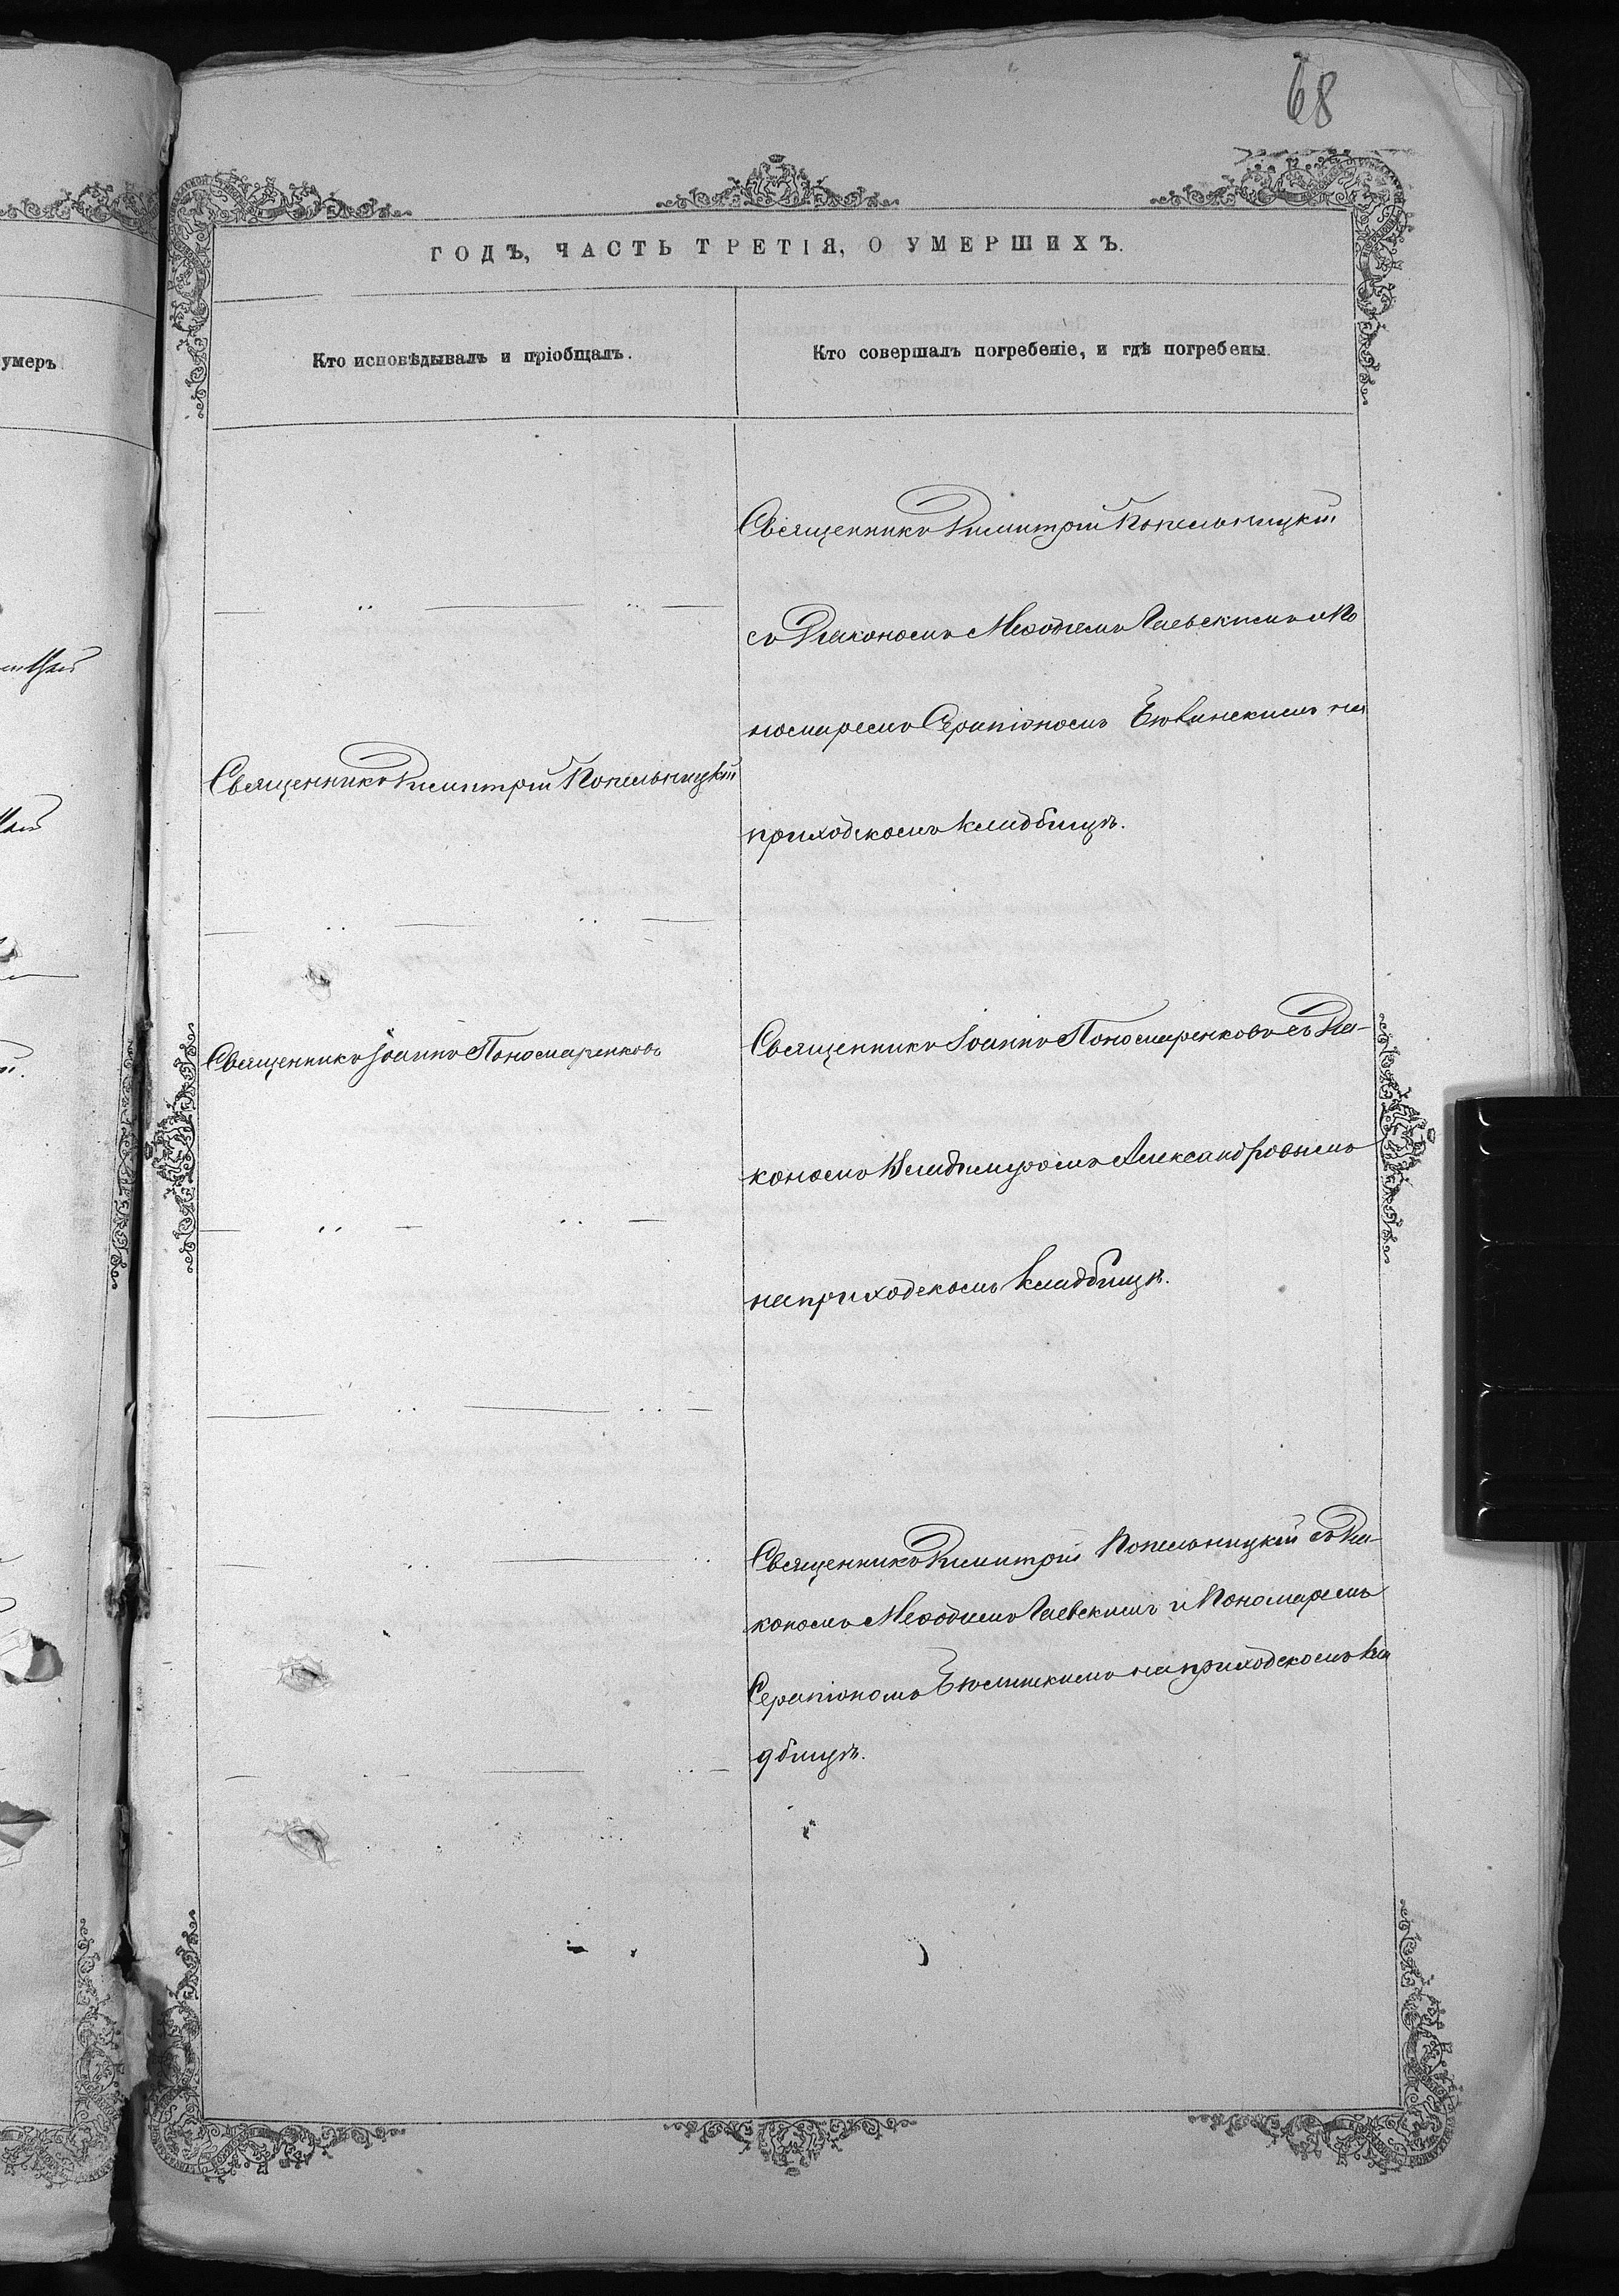 68
ГОДЪ, ЧАСТЬ ТРЕТІЯ, О УМЕРШИХЪ.
умеръ
Кто исповѣдывалъ и пріобщалъ.
Кто совершалъ погребеніе, и гдѣ погребены.
Священникъ Димитрій Копельницкій
съ Діакономъ Меѳодіемъ Гаевскимъ и По
номаремъ Серапіономъ на
приходскомъ кладбищѣ.
Священникъ Димитрій Копельницкій
Священникъ Іоаннъ Пономаренковъ
Священникъ Іоаннъ Пономаренковъ съ Діа-
кономъ Владимиромъ Александровымъ
на приходскомъ кладбищѣ.
Священникъ Димитрій Копельницкій съ Діа-
кономъ Меѳодіемъ Гаевскимъ и Пономаремъ
Серапіономъ на приходскомъ кла
дбищѣ.